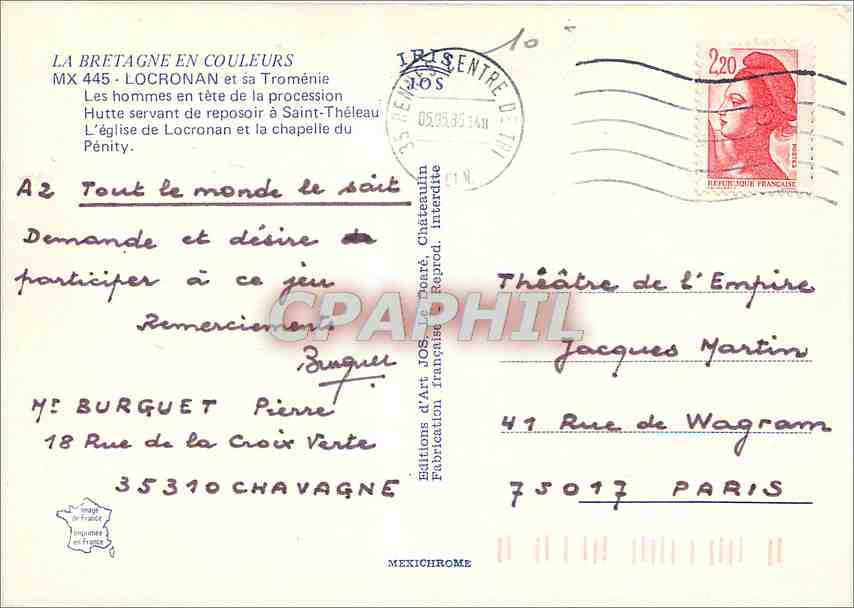 LA BRETAGNE EN COULEURS
MX 445 - LOCRONAN et sa Troménie
Les hommes en tête de la procession
Hutte servant de reposoir à Saint-Théleau
L'église de Locronan et la chapelle du
Pénity.
IRIS
JOS
10
35 RENNES CENTRE DE TRI
2,20
POSTES
REPUBLIQUE FRANÇAISE
A2 Tout le monde le sait
Demande et désire
participer à ce jeu
Remerciements
Burguet
Mr BURGUET Pierre
18 Rue de la Croix Verte
35310 CHAVAGNE
Image
de France
Imprimée
en France
Editions d'Art JOS, Le Doaré, Châteaulin
Fabrication française - Reprod. interdite
CPAPHIL
Théâtre de l'Empire
Jacques Martin
41 Rue de Wagram
75017 PARIS
MEXICHROME